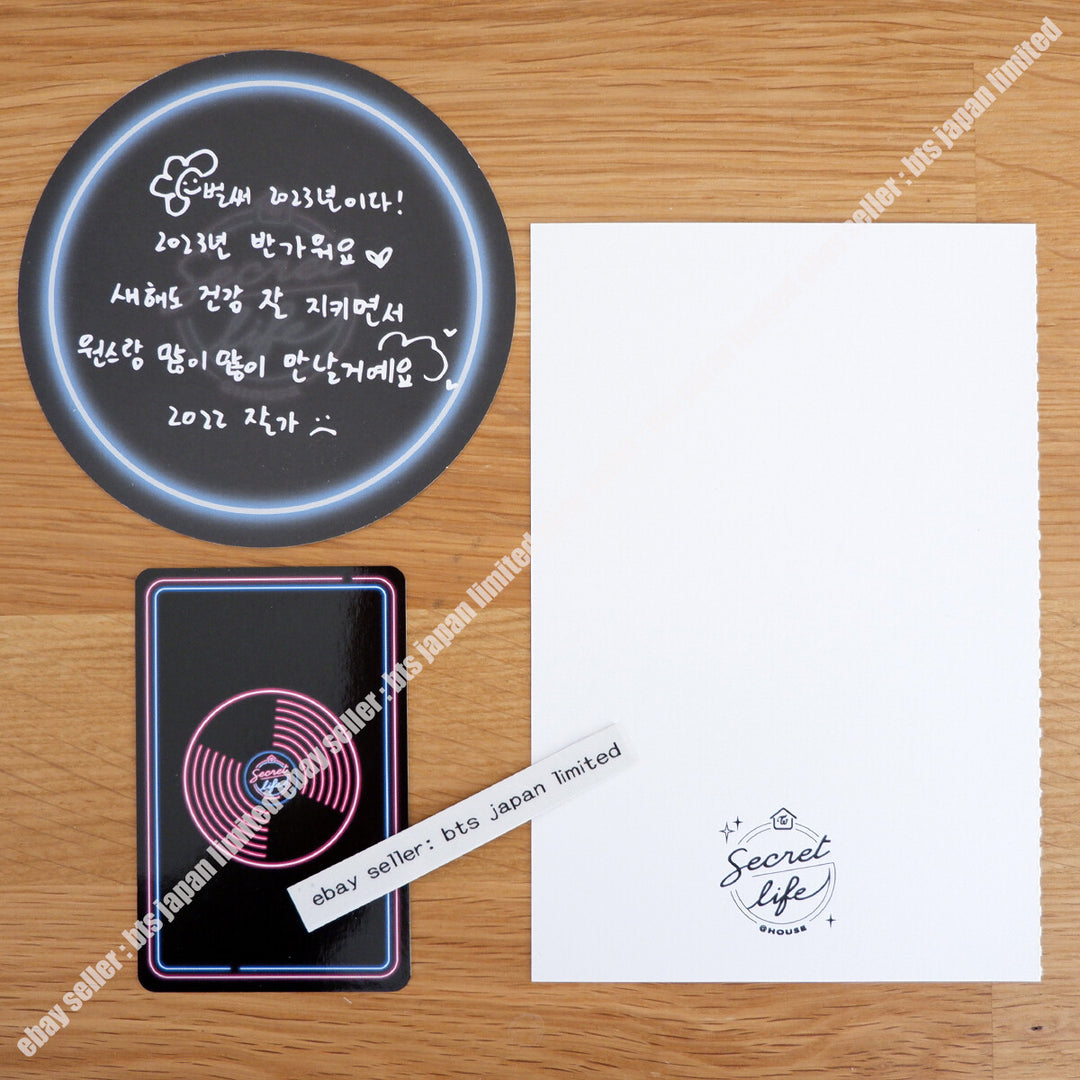 벌써 2023년이다!
2023년 반가워요
새해도 건강 잘 지키면서
원스랑 많이 많이 만날거예요
2022 잘가
Secret
life
Secret
life
ebay seller: bts japan limited
Secret
life
@HOUSE
ebay seller : bts japan limited ebay seller : bts japan limited
ebay seller : bts japan limited